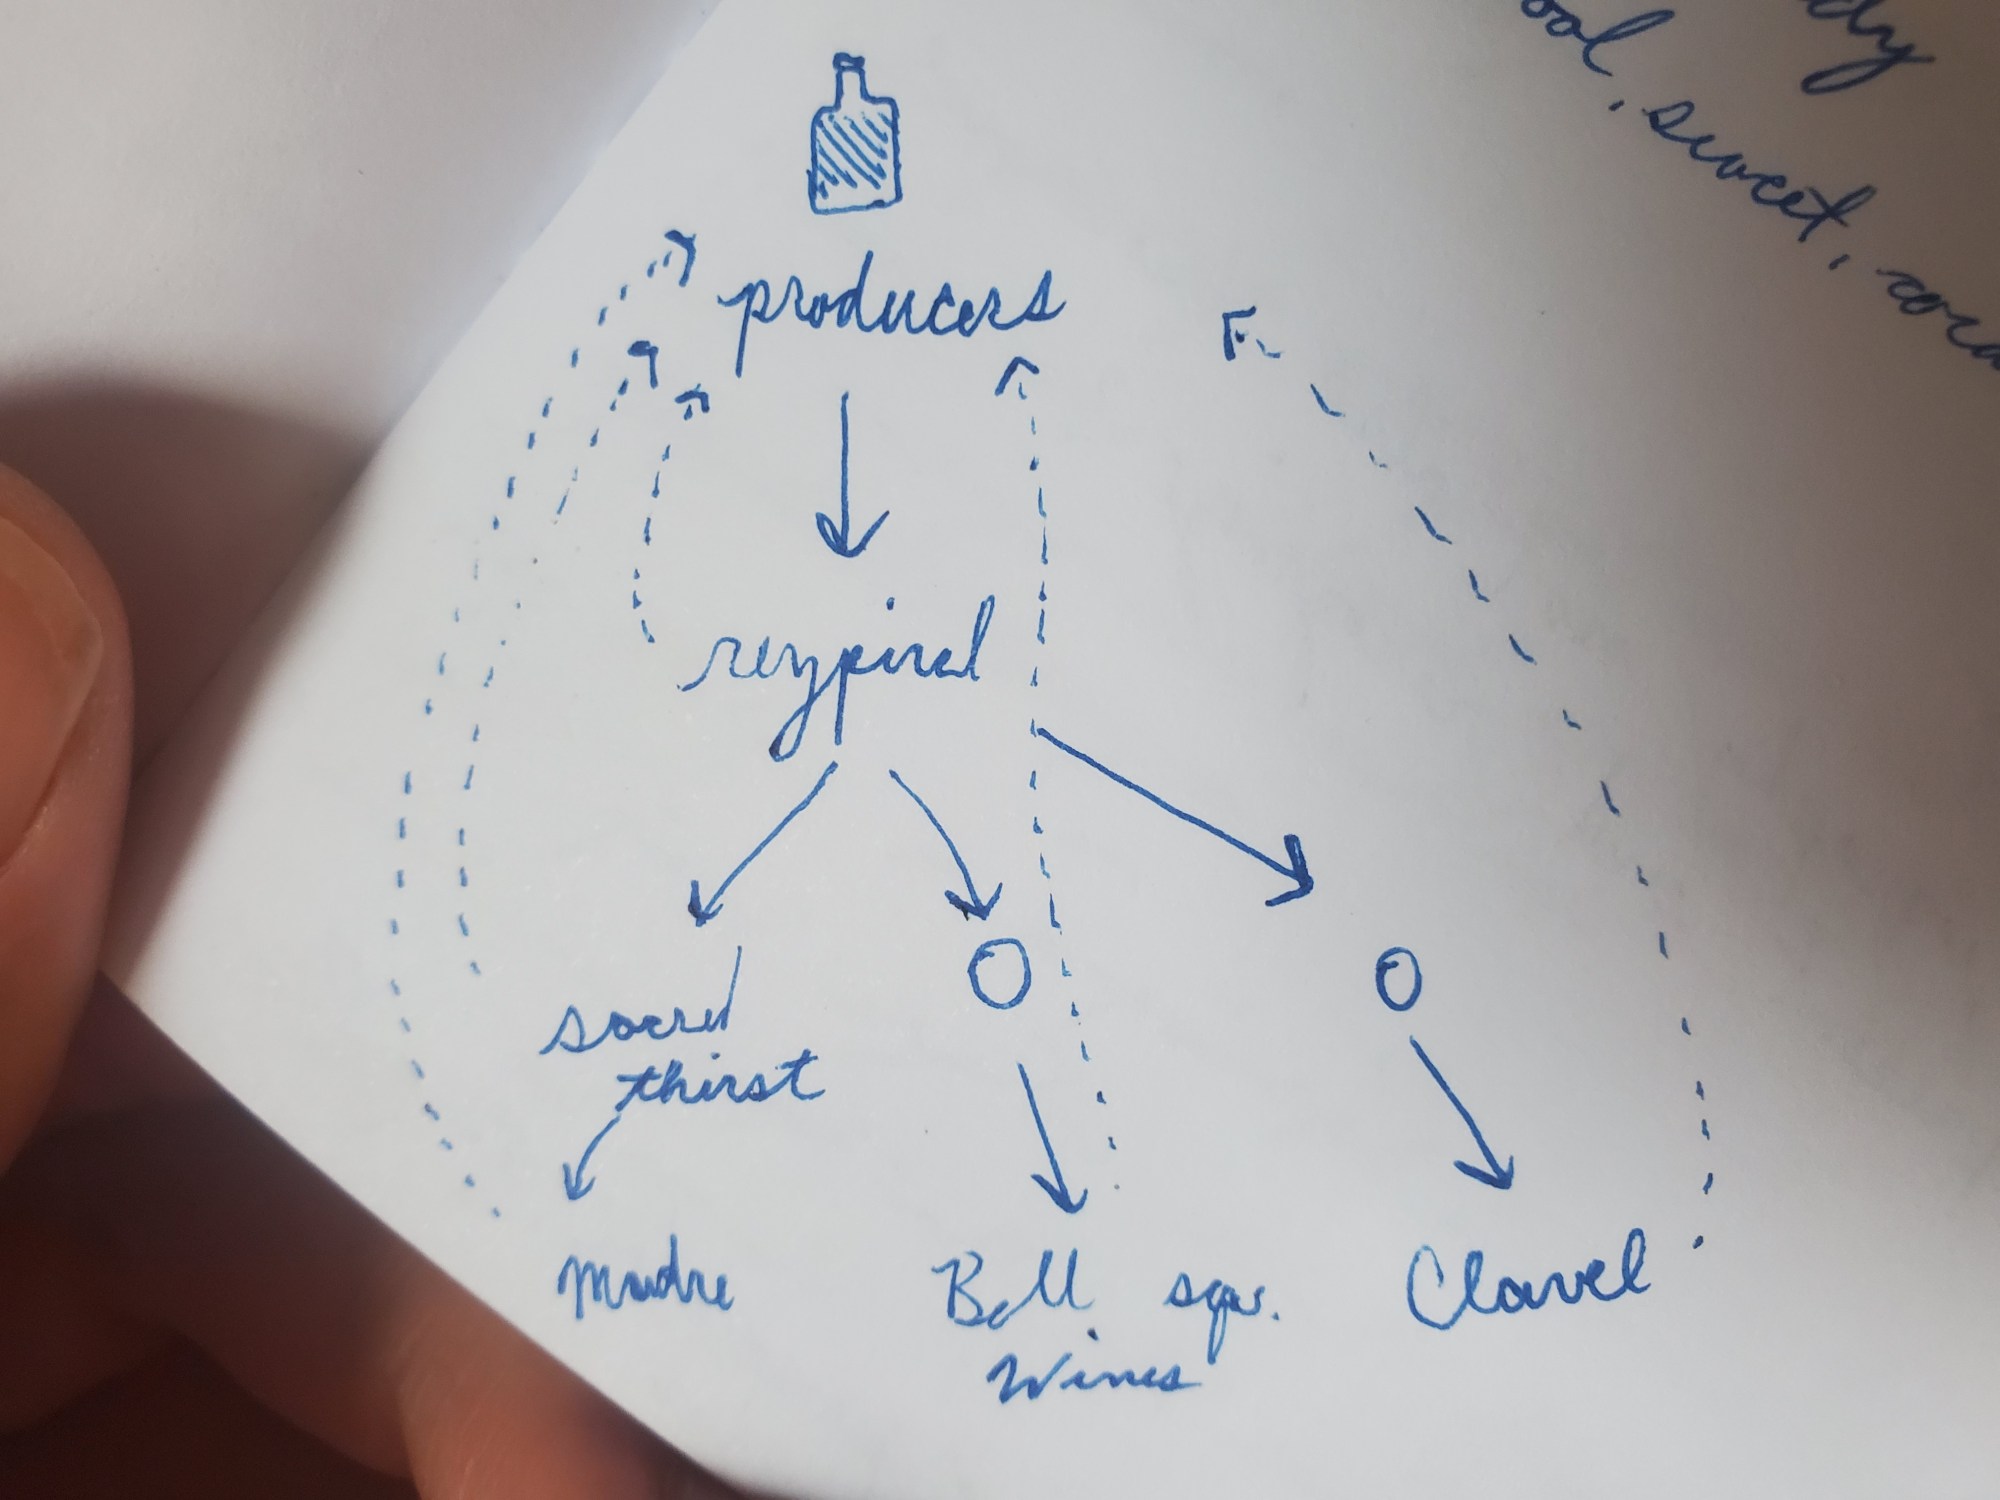 ool, sweet, coco
producers
reypiral
sacred
thirst
madre
Ball sqr.
Wines
Clavel